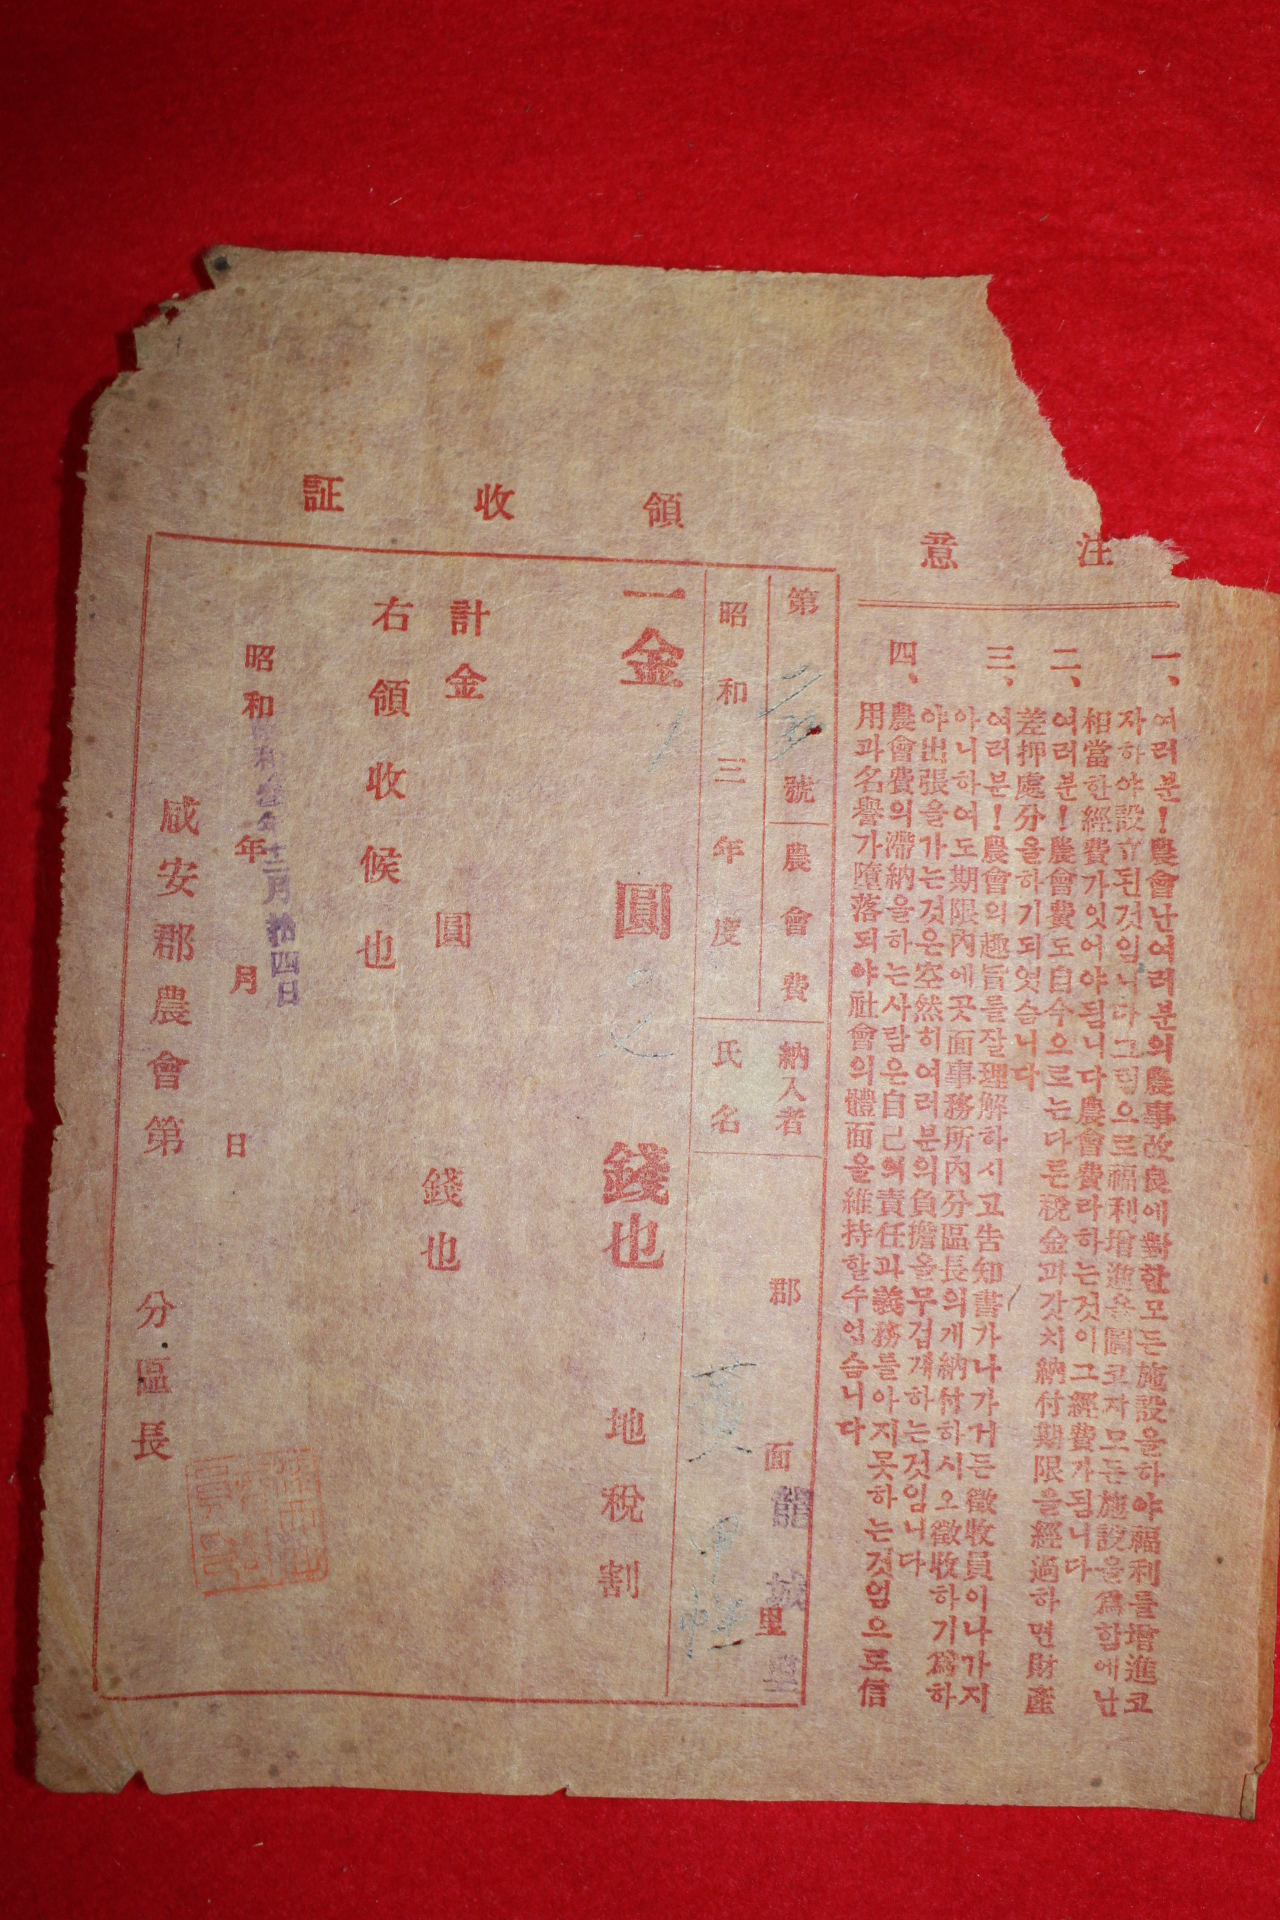 注意
一、여러분！農會난여러분의農事改良에對한모든施設을하야福利를增進코
자하야設立된것임니다그럼으로福利增進을圖코자모든施設을爲함에난
相當한經費가잇어야됨니다農會費라하는것이그經費가됨니다
二、여러분！農會費도自今으로는다른稅金과갓치納付期限을經過하면財產
差押處分을하기되엿슴니다
三、여러분！農會의趣旨를잘理解하시고告知書가나가거든徵收員이나가지
아니하여도期限內에곳面事務所內分區長의게納付하시오徵收하기爲하
야出張을가는것은空然히여러분의負擔을무겁개하는것임니다
四、農會費의滯納을하는사람은自己의責任과義務를아지못하는것임으로信
用과名譽가墮落되야社會의體面을維持할수업슴니다
領收証
第 號
昭和三年度
農會費
納入者
氏名
郡
面 龍城
里
一金 圓 錢也 地稅割
計金 圓 錢也
右領收候也
昭和 年 月 日
昭和参年十二月拾四日
咸安郡農會第 分區長